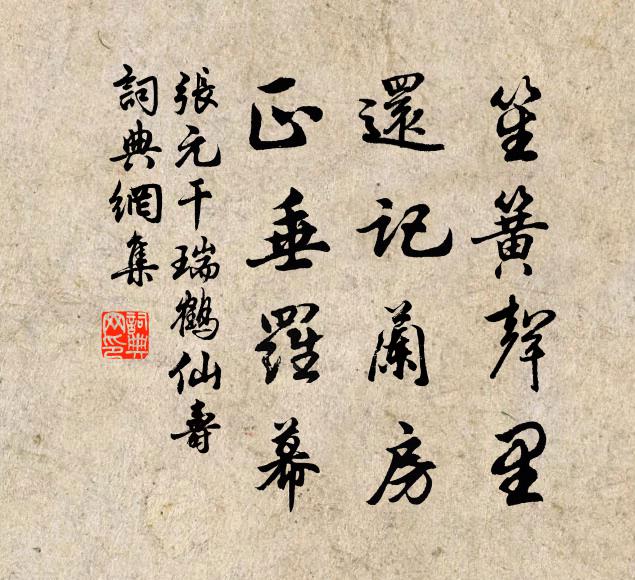 笙簧聲里
還記蘭房
正垂羅幕
張元干瑞鶴仙壽
詞典網集
詞典
网印